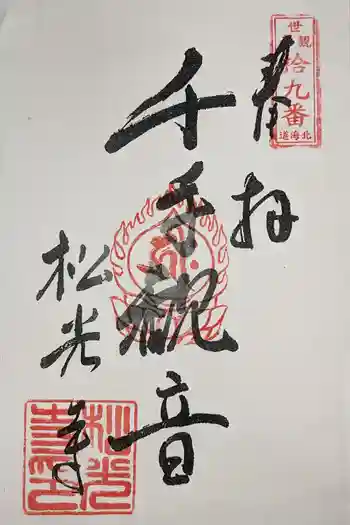 奉拝
世観
拾九番
北海道
千手観音
松光寺
松光寺